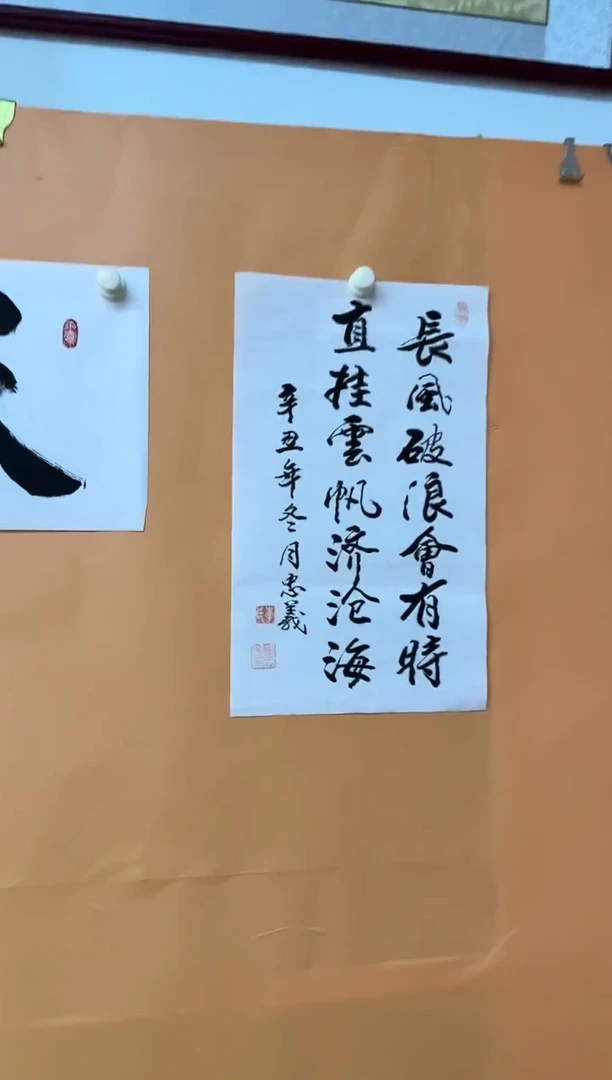 長風破浪會有時
直挂雲帆济沧海
辛丑年冬月忠義